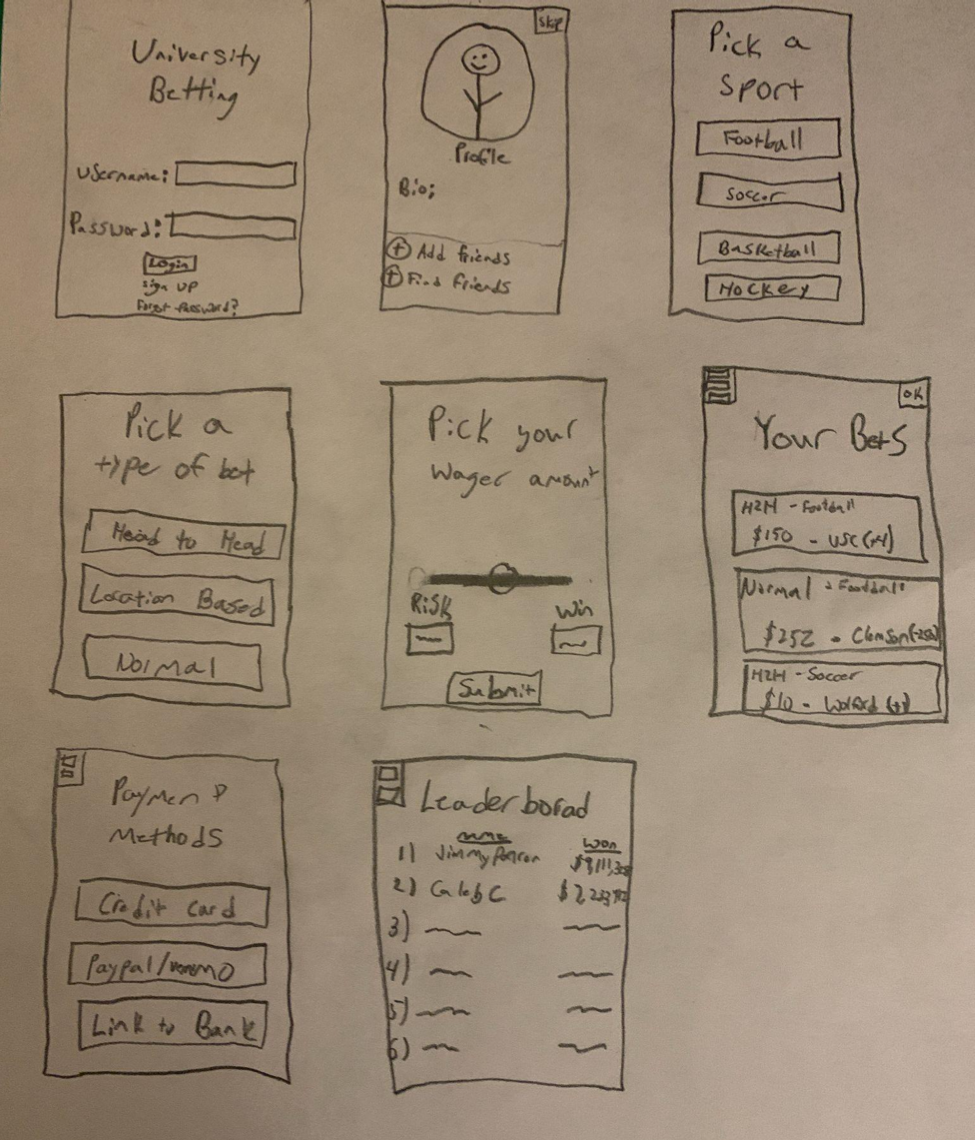 University
Betting
Username:
Password:
Login
Sign up
Forgot Password?
Skip
Profile
Bio:
Add friends
Find friends
Pick a
Sport
Football
Soccer
Basketball
Hockey
Pick a
type of bet
Head to Head
Location Based
Normal
Pick your
wager amount
Risk
Win
Submit
OK
Your Bets
H2H - Football
$150 - USC (+4)
Normal - Football
$252 - Clemson
H2H - Soccer
$10 - Wofford
Payment
Methods
Credit Card
Paypal/venmo
Link to Bank
Leaderborad
name
Won
1) Jimmy
2) Caleb C
3)
4)
5)
6)